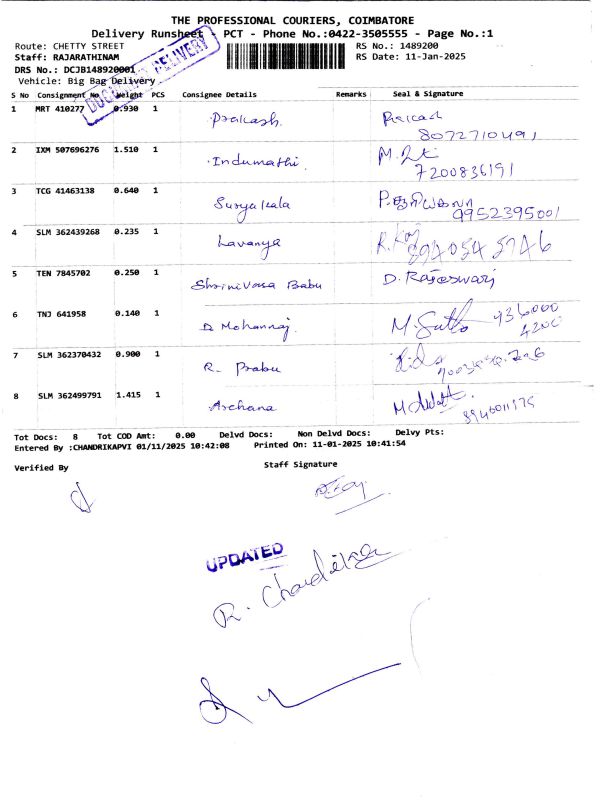 THE PROFESSIONAL COURIERS, COIMBATORE
Delivery Runsheet - PCT - Phone No.:0422-3505555 - Page No.:1
Route: CHETTY STREET RS No.: 1489200
Staff: RAJARATHINAM RS Date: 11-Jan-2025
DRS No.: DCJB148920001
Vehicle: Big Bag Delivery
DOCUMENT DELIVERY
S No Consignment No Weight PCS Consignee Details Remarks Seal & Signature
1 MRT 410277 0.930 1 Prakash Prakash
8072710491
2 IXM 507696276 1.510 1 Indumathi
7200836191
3 TCG 41463138 0.640 1 Suryakala P.சூரியகலா
9952395001
4 SLM 362439268 0.235 1 Lavanya
8940545746
5 TEN 7845702 0.250 1 Shrinivasa Babu D. Rajeswari
6 TNJ 641958 0.140 1 D Mohanraj
7 SLM 362370432 0.900 1 R. Prabu
8 SLM 362499791 1.415 1 Archana
Tot Docs: 8 Tot COD Amt: 0.00 Delvd Docs: Non Delvd Docs: Delvy Pts:
Entered By :CHANDRIKAPVI 01/11/2025 10:42:08 Printed On: 11-01-2025 10:41:54
Verified By Staff Signature
UPDATED
R. Chandrika